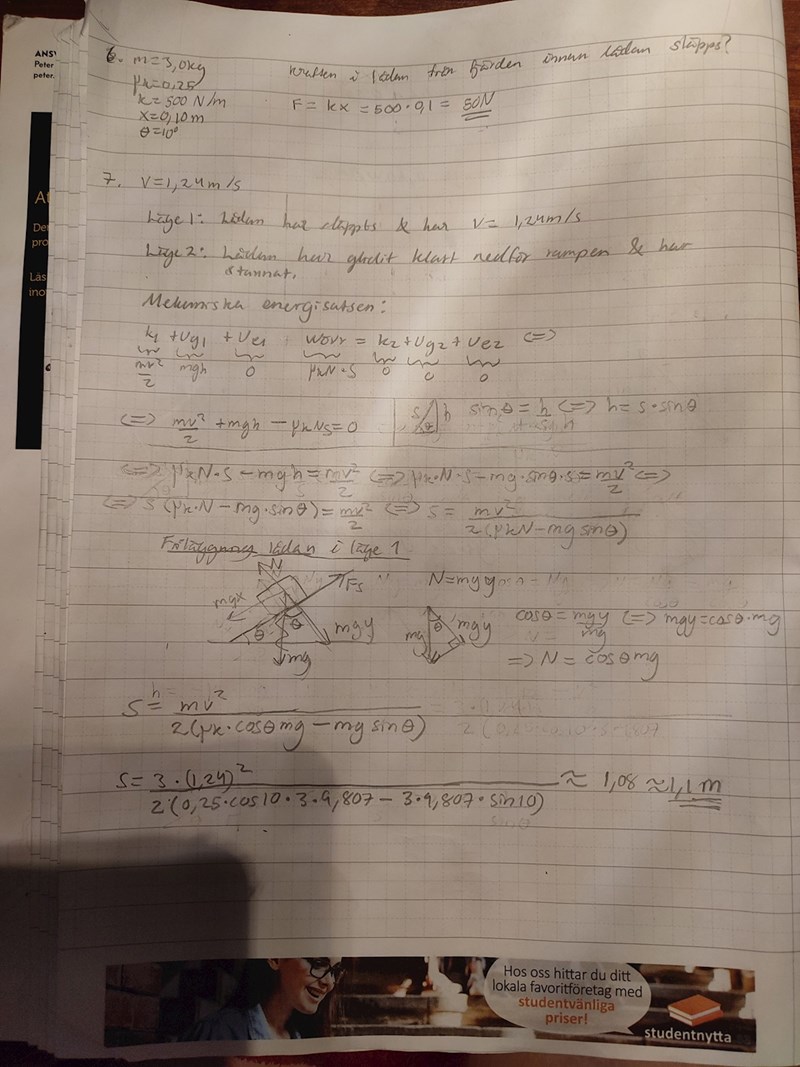 ANSV
Peter
peter.
6. m=3,0kg
μk=0,25
k=500 N/m
x=0,10m
θ=10°
Kraften i lådan från fjädern innan lådan släpps?
F = kx = 500·0,1 = 50N
7. V=1,24m/s
Läge 1: Lådan har släppts & har V = 1,24m/s
Läge 2: Lådan har glidit klart nedför rampen & har
stannat.
Mekaniska energisatsen:
k1 + Ug1 + Ue1 + Wövr = k2 + Ug2 + Ue2 <=>
mv²/2 mgh 0 μkN·s 0 0 0
<=> mv²/2 + mgh − μkNs = 0
s h θ sinθ = h/s <=> h = s·sinθ
<=> μkN·s − mgh = mv²/2 <=> μk·N·s − mg·sinθ·s = mv²/2 <=>
<=> s(μk·N − mg·sinθ) = mv²/2 <=> s = mv²/2(μkN − mg sinθ)
Friläggning lådan i läge 1
N Fs mgx θ θ mgy mg
N = mgy
mg θ mgy
cosθ = mgy/mg <=> mgy = cosθ·mg
=> N = cosθmg
s = mv²/2(μk·cosθmg − mg sinθ)
s = 3·(1,24)²/2·(0,25·cos10·3·9,807 − 3·9,807·sin10) ≈ 1,08 ≈ 1,1 m
At
Der
pro
Läs
ino
Hos oss hittar du ditt
lokala favoritföretag med
studentvänliga
priser!
studentnytta